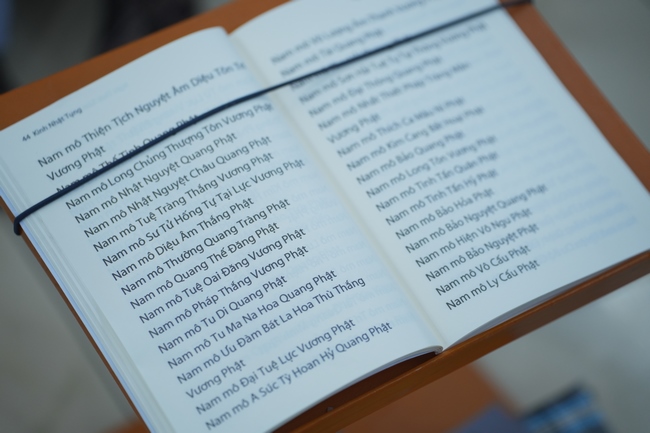 44 Kinh Nhật Tụng
Nam mô Thiện Tịch Nguyệt Âm Diệu Tôn
Vương Phật
Nam mô Thế Tịnh Quang Phật
Nam mô Long Chủng Thượng Tôn Vương Phật
Nam mô Nhật Nguyệt Quang Phật
Nam mô Nhật Nguyệt Châu Quang Phật
Nam mô Tuệ Tràng Thắng Vương Phật
Nam mô Sư Tử Hống Tự Tại Lực Vương Phật
Nam mô Diệu Âm Thắng Phật
Nam mô Thường Quang Tràng Phật
Nam mô Quang Thế Đăng Phật
Nam mô Tuệ Oai Đăng Vương Phật
Nam mô Pháp Thắng Vương Phật
Nam mô Tu Di Quang Phật
Nam mô Tu Ma Na Hoa Quang Phật
Nam mô Ưu Đàm Bát La Hoa Thù Thắng
Vương Phật
Nam mô Đại Tuệ Lực Vương Phật
Nam mô A Súc Tỳ Hoan Hỷ Quang Phật
Nam mô Vô Lượng Âm Thanh Vương Phật
Nam mô Tài Quang Phật
Nam mô Sơn Hải Tuệ Tự Tại Thông Vương Phật
Nam mô Đại Thông Quang Phật
Nam mô Nhất Thiết Pháp Tràng Mãn
Vương Phật
Nam mô Thích Ca Mâu Ni Phật
Nam mô Kim Cang Bất Hoại Phật
Nam mô Bảo Quang Phật
Nam mô Long Tôn Vương Phật
Nam mô Tinh Tấn Quân Phật
Nam mô Tinh Tấn Hỷ Phật
Nam mô Bảo Hỏa Phật
Nam mô Bảo Nguyệt Quang Phật
Nam mô Hiện Vô Ngu Phật
Nam mô Bảo Nguyệt Phật
Nam mô Vô Cấu Phật
Nam mô Ly Cấu Phật